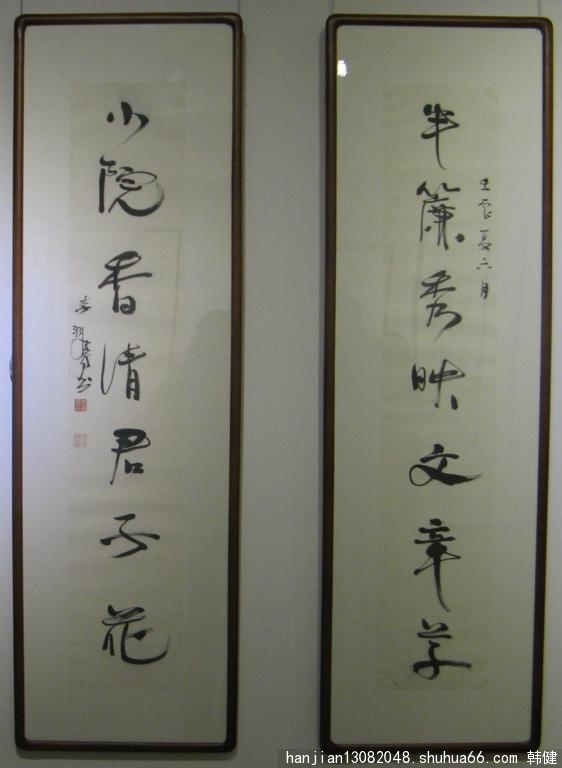 半簾秀映文章草
壬辰夏六月
小院香清君子花
hanjian13082048.shuhua66.com 韩健